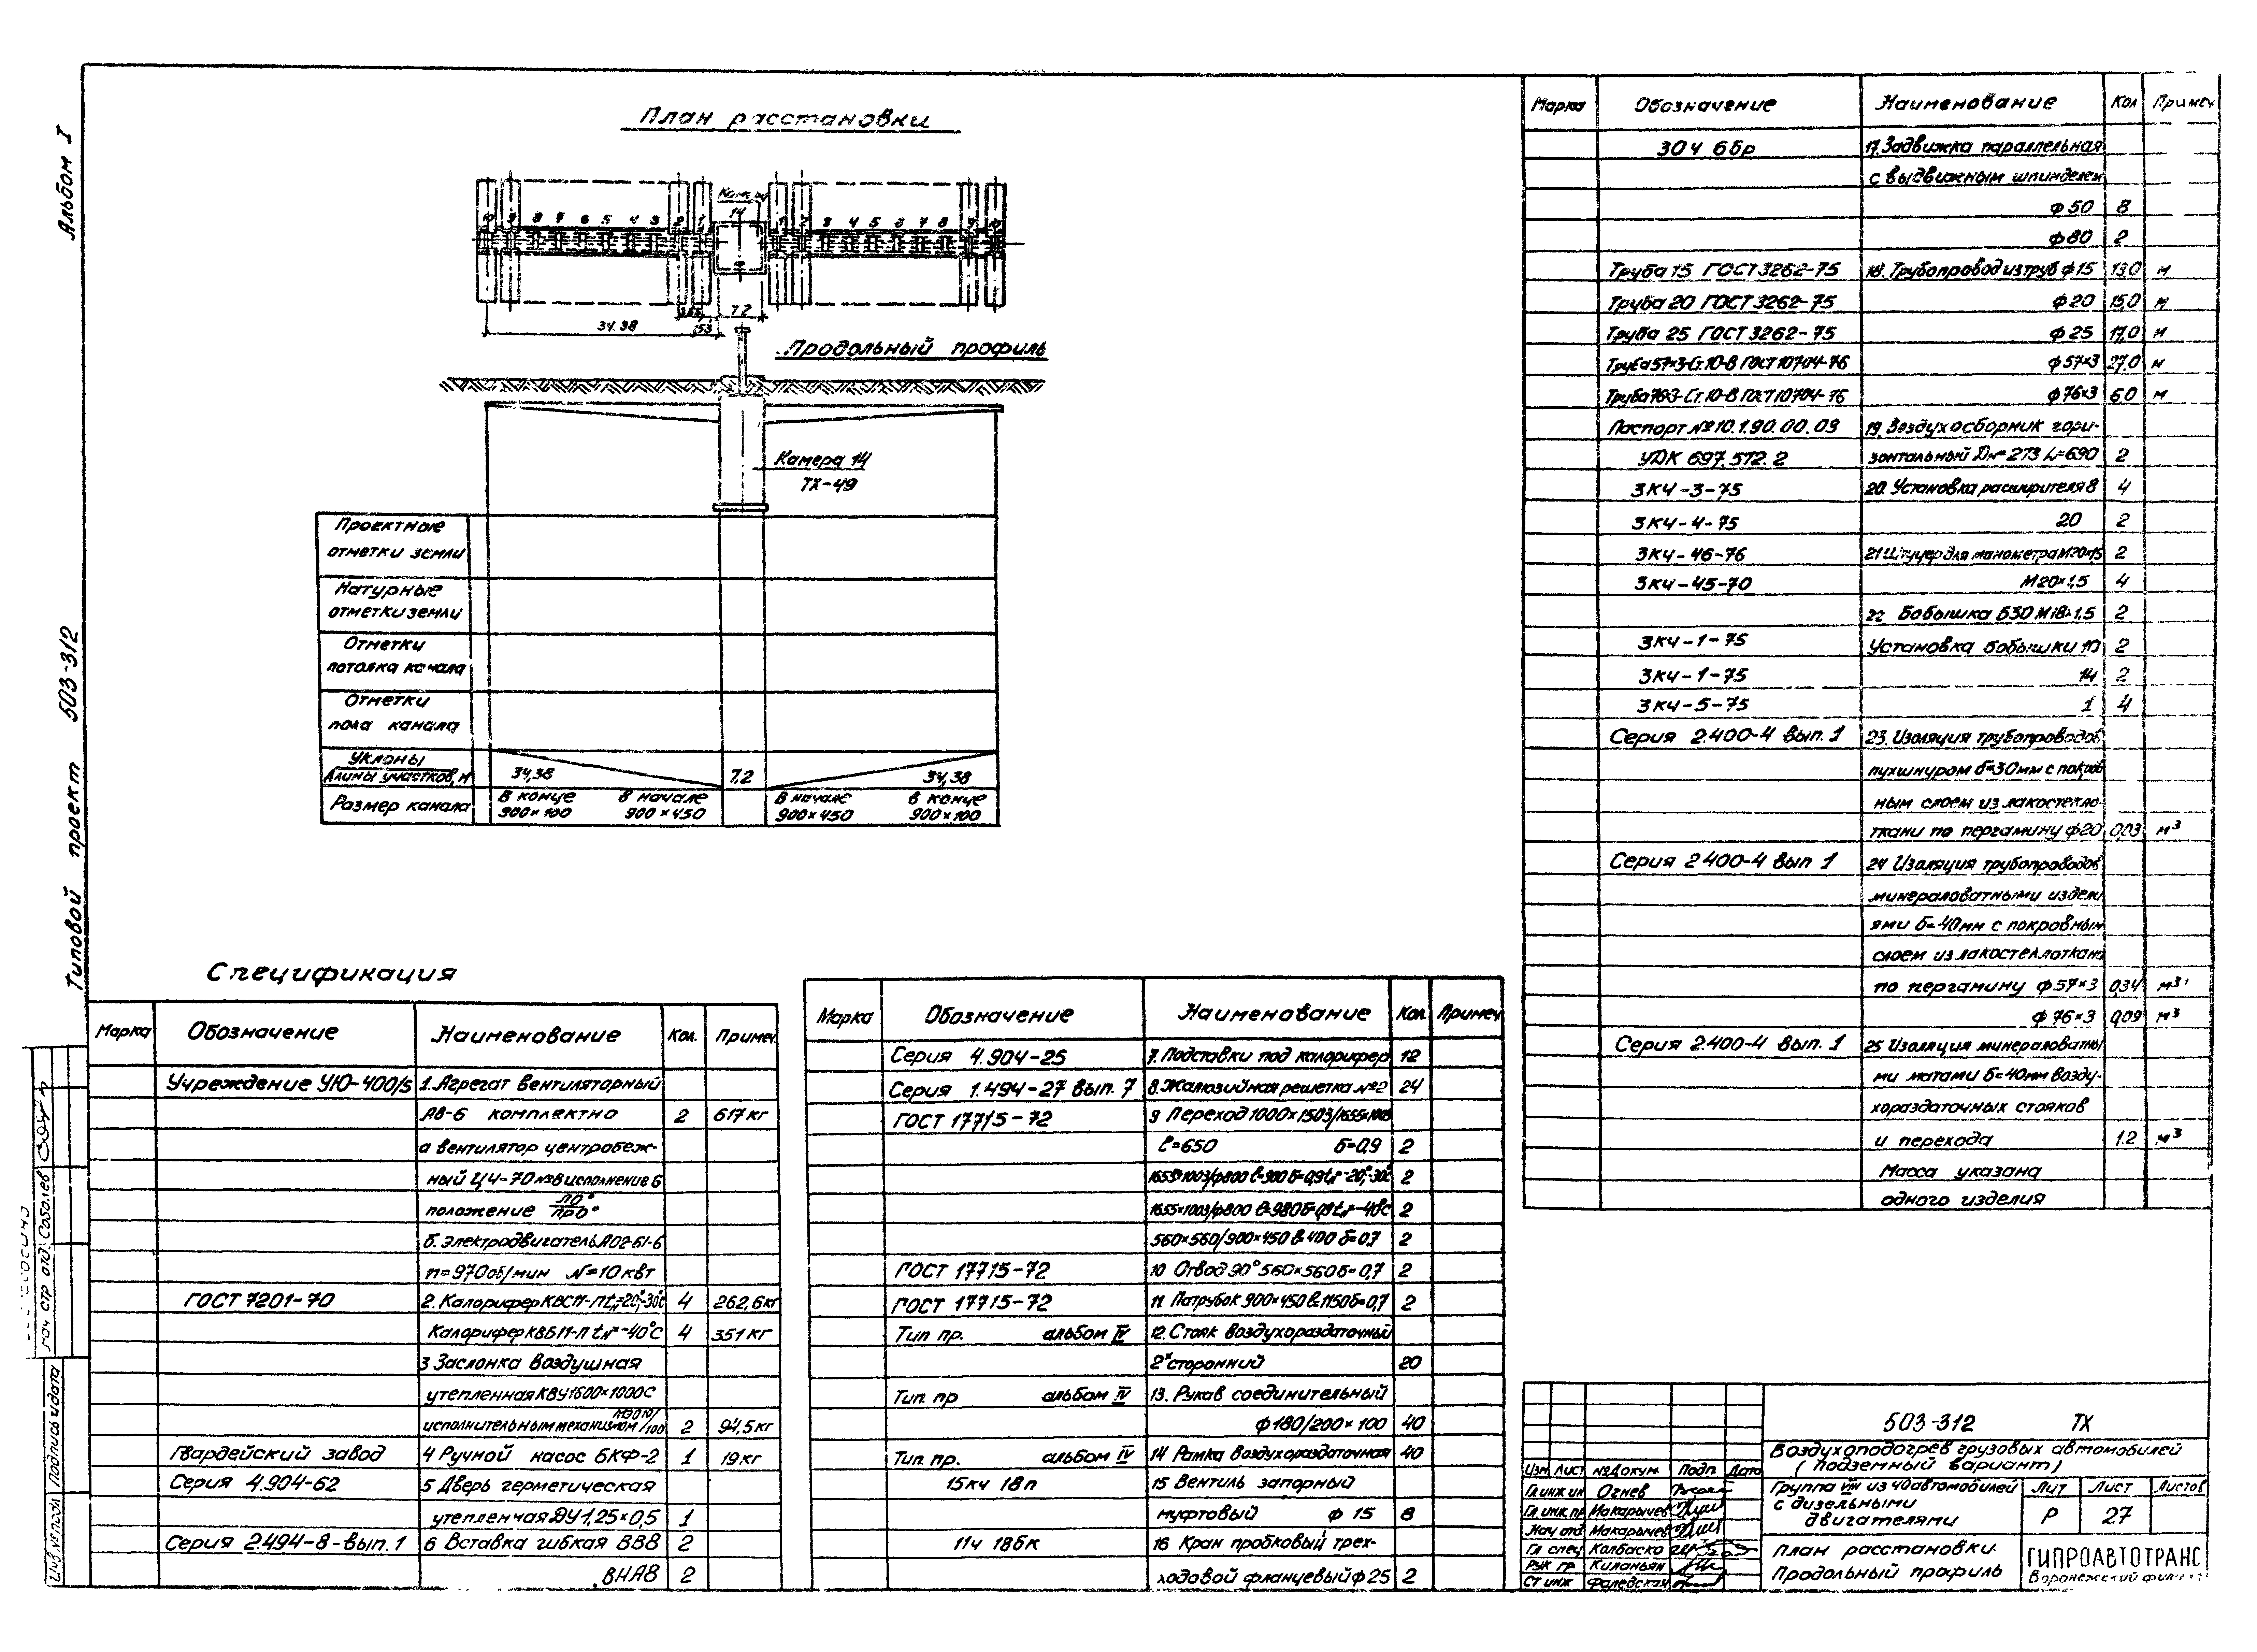 Альбом I
Типовой проект 503-312
План расстановки
Камера
14
10 9 8 7 6 5 4 3 2 1
1 2 3 4 5 6 7 8 9 10
34.38
7.2
Продольный профиль
Камера 14
ТХ-49
Проектные
отметки земли
Натурные
отметки земли
Отметки
потолка канала
Отметки
пола канала
Уклоны
Длины участков, м
34,38 7.2 34,38
Размер канала
в конце в начале в начале в конце
900×100 900×450 900×450 900×100
Спецификация
Марка Обозначение Наименование Кол. Примеч.
Учреждение УЮ-400/5 1. Агрегат вентиляторный
А8-6 комплектно 2 617 кг
а вентилятор центробеж-
ный Ц4-70 №8 исполнение 6
положение Л0° Пр0°
б. Электродвигатель АО2-61-6
n=970 об/мин N=10 квт
ГОСТ 7201-70 2. Калорифер КВС11-П tн=-20°;-30°с 4 262,6 кг
Калорифер КВБ11-П tн=-40°С 4 351 кг
3 Заслонка воздушная
утепленная КВУ1600×1000С
исполнительным механизмом МЭО 10/100 2 94,5 кг
Гвардейский завод 4 Ручной насос БКФ-2 1 19 кг
Серия 4.904-62 5 Дверь герметическая
утепленная ДУ1,25×0,5 1
Серия 2.494-8-вып. 1 6 Вставка гибкая ВВ8 2
ВНА8 2
Марка Обозначение Наименование Кол. Примеч
Серия 4.904-25 7. Подставки под калорифер 12
Серия 1.494-27 вып. 7 8. Жалюзийная решетка №2 24
ГОСТ 17715-72 9 Переход 1000×1503/1655×1003
ℓ=650 б=0,9 2
1655×1003/ф800 ℓ=900 б=0,9 tн=-20°;-30°с 2
1655×1003/ф800 ℓ=980 б=0,9 tн=-40°с 2
560×560/900×450 ℓ=400 б=0,7 2
ГОСТ 17715-72 10 Отвод 90° 560×560 б=0,7 2
ГОСТ 17715-72 11 Патрубок 900×450 ℓ=1150 б=0,7 2
Тип пр. альбом IV 12. Стояк воздухораздаточный
2х сторонний 20
Тип. пр альбом IV 13. Рукав соединительный
ф180/200×100 40
Тип. пр. альбом IV 14 Рамка воздухораздаточная 40
15кч 18п 15 Вентиль запорный
муфтовый ф 15 8
11ч 18бк 16 Кран пробковый трех-
ходовой фланцевый ф25 2
Марка Обозначение Наименование Кол Примеч
30ч 6бр 17. Задвижка параллельная
с выдвижным шпинделем
ф50 8
ф80 2
Труба 15 ГОСТ 3262-75 18. Трубопровод из труб ф15 13.0 м
Труба 20 ГОСТ 3262-75 ф20 15,0 м
Труба 25 ГОСТ 3262-75 ф25 17,0 м
Труба 57×3-Ст.10-В ГОСТ 10704-76 ф57×3 27.0 м
Труба 76×3-Ст.10-В ГОСТ 10704-76 ф76×3 6.0 м
Паспорт №10.1.90.00.03 19. Воздухосборник гори-
УДК 697.572.2 зонтальный Дн=273 L=690 2
ЗКЧ-3-75 20. Установка расширителя 8 4
ЗКЧ-4-75 20 2
ЗКЧ-46-76 21 Штуцер для манометра М20×1,5 2
ЗКЧ-45-70 М20×1,5 4
22 Бобышка Б30 М18×1.5 2
ЗКЧ-1-75 Установка бобышки 10 2
ЗКЧ-1-75 14 2
ЗКЧ-5-75 1 4
Серия 2.400-4 вып. 1 23. Изоляция трубопроводов
пухшнуром б=30мм с покров
ным слоем из лакостекло-
ткани по пергамину ф20 0,03 м³
Серия 2.400-4 вып 1 24 Изоляция трубопроводов
минераловатными издели
ями б=40мм с покровным
слоем из лакостеклоткани
по пергамину ф57×3 0,34 м³
ф76×3 0,09 м³
Серия 2.400-4 вып. 1 25 Изоляция минераловатны
ми матами б=40мм возду-
хораздаточных стояков
и перехода 1.2 м³
Масса указана
одного изделия
503-312 ТХ
Воздухоподогрев грузовых автомобилей
(подземный вариант)
Изм Лист № докум. Подп. Дата
Гл инж ин Огнев
Гл. инж. пр Макарычев
Нач отд Макарычев
Гл спец Колбаско
Рук гр Киланьян
Ст инж Фалевская
Группа VIII из 40 автомобилей
с дизельными
двигателями
Лит Лист Листов
Р 27
План расстановки.
Продольный профиль
ГИПРОАВТОТРАНС
Воронежский филиал
Нач стр отд Соболев
Подпись и дата
Инв. № подл